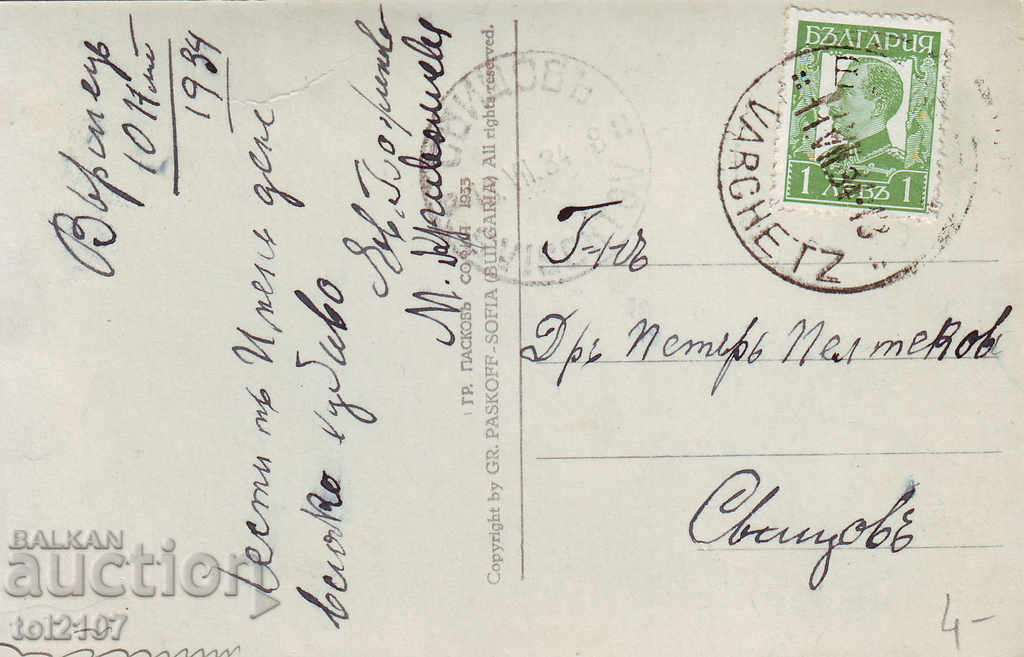 Вършецъ
10 Юлий
1934
Честитъ Имень день
всичко хубаво
М.
ГР. ПАСКОВЪ СОФИЯ 1933
Copyright by GR. PASKOFF-SOFIA (BULGARIA) All rights reserved.
БЪЛГАРИЯ
1 ЛЕВЪ 1
VARCHETZ
Г-нъ
Дръ Петъръ Пелтеков
Свищовъ
4-
BALKAN
auction
tol2107